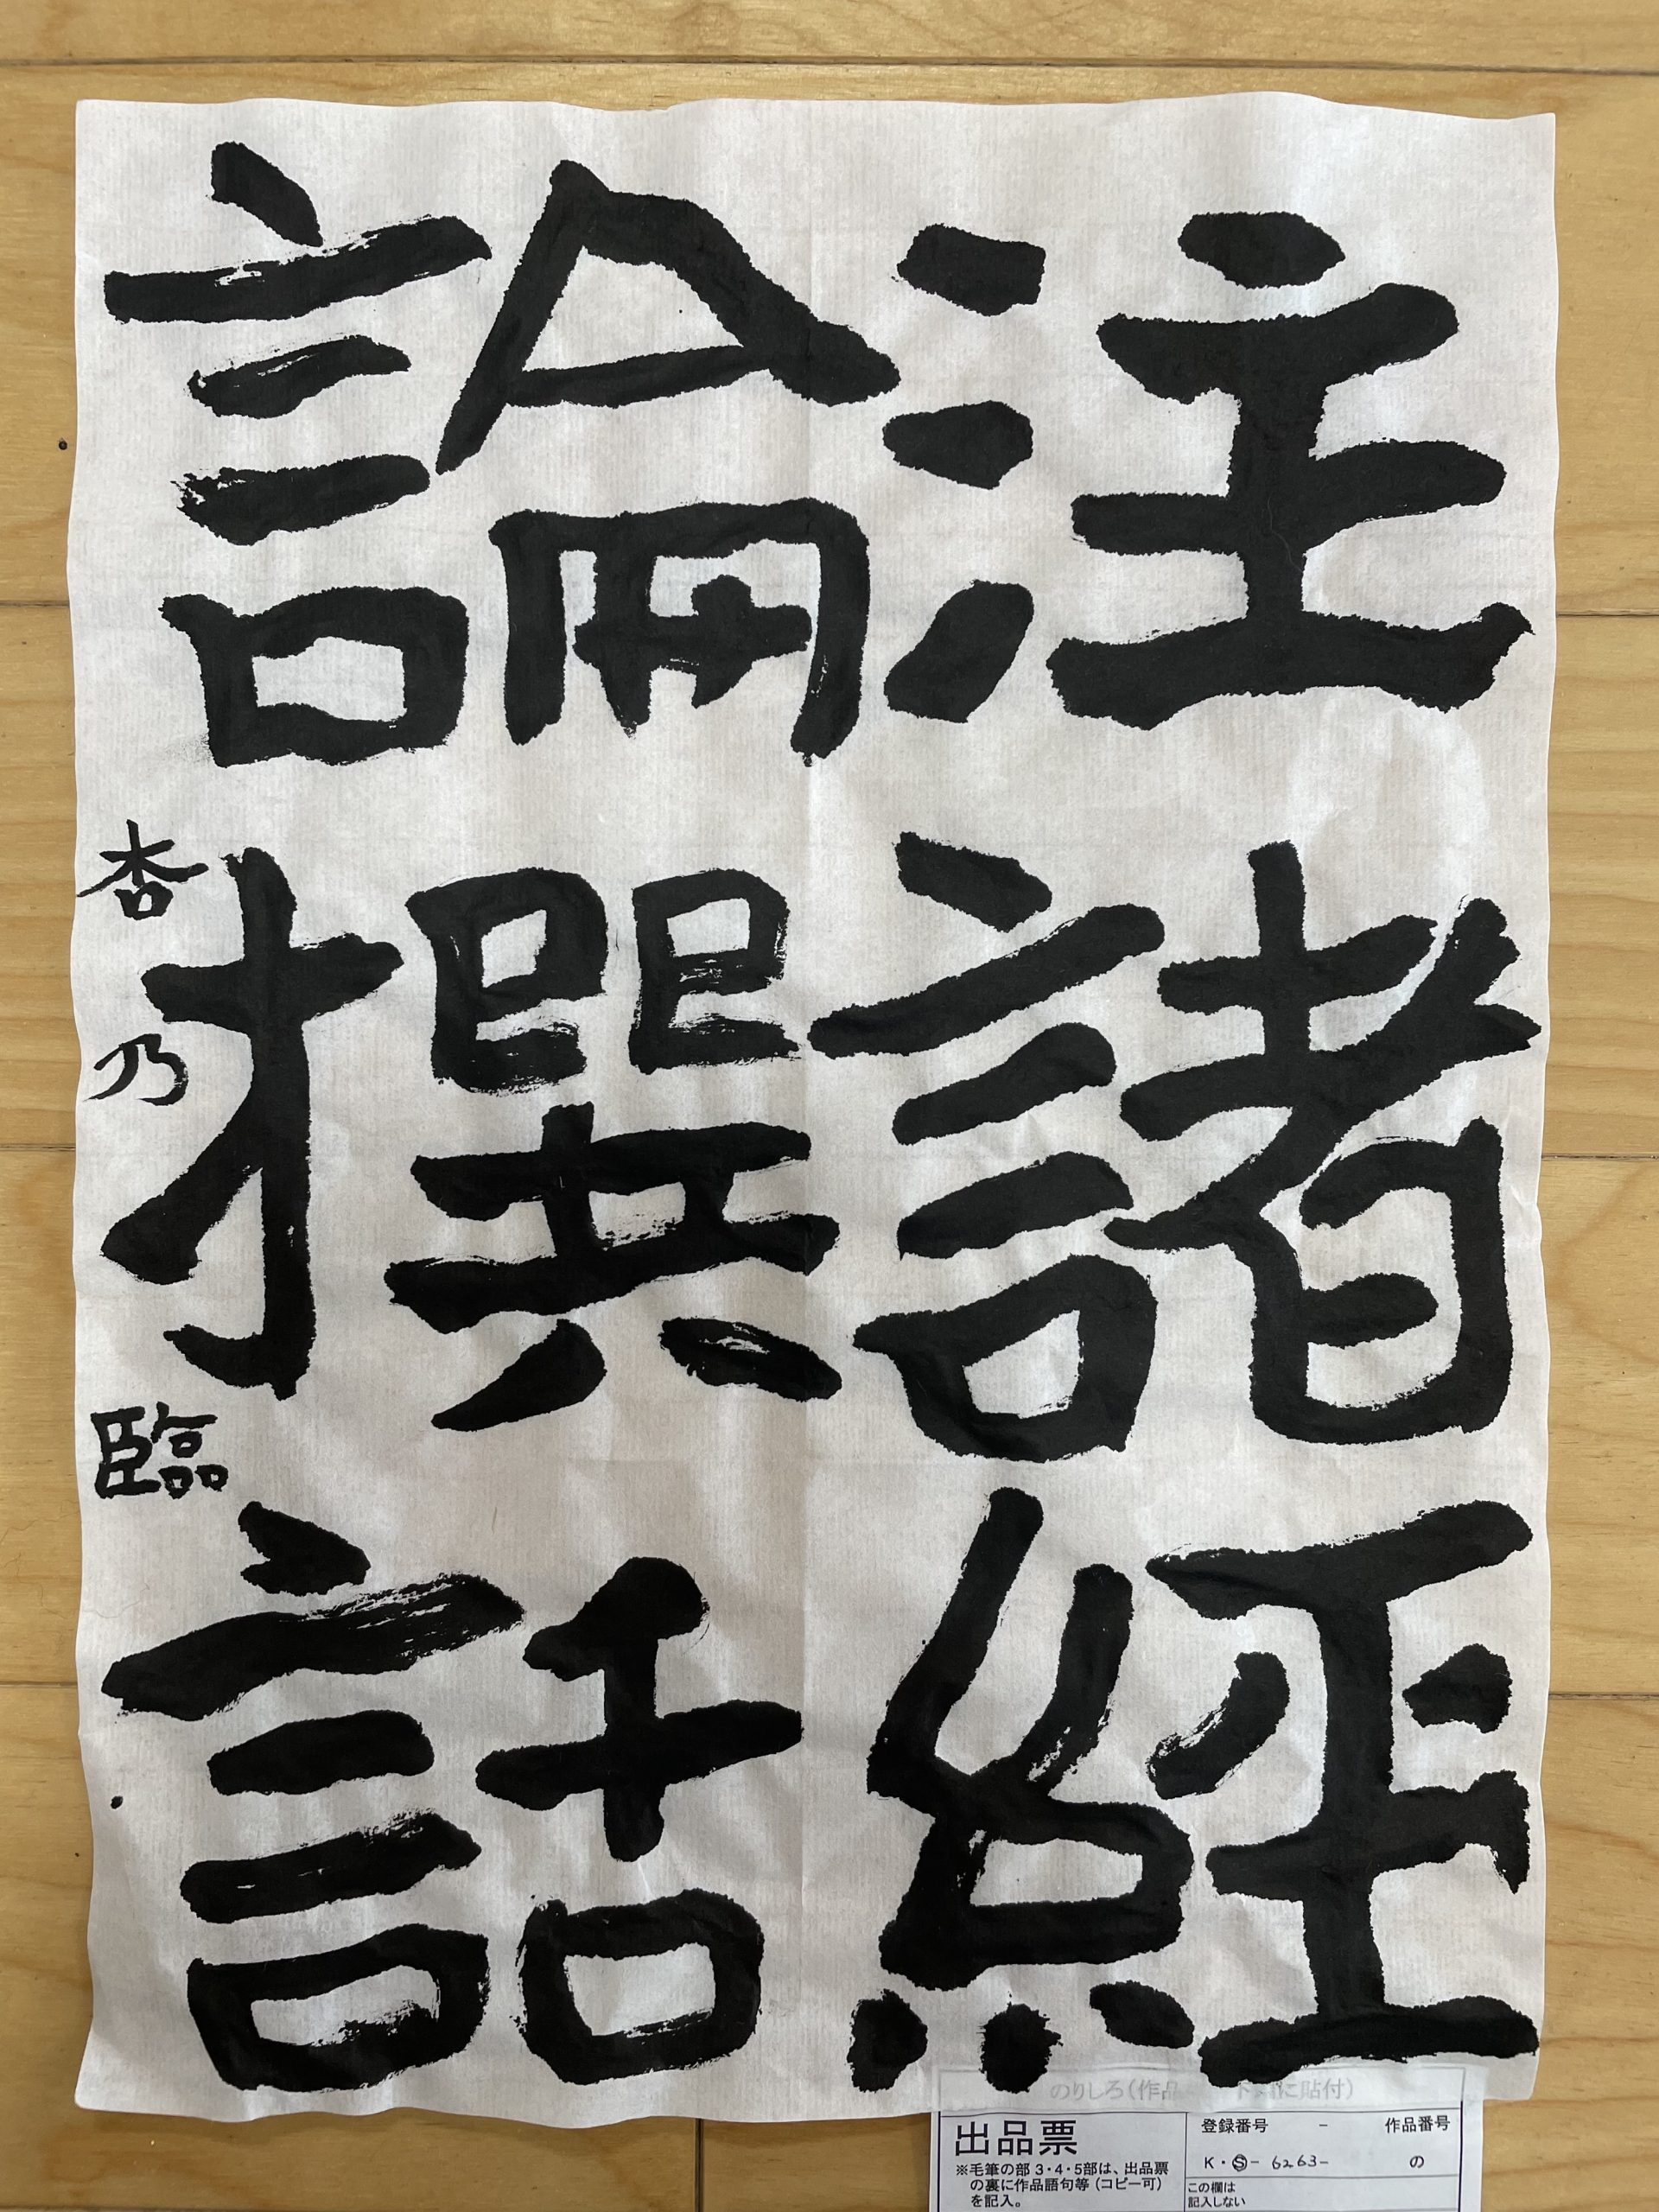 注諸經
論撰話
杏乃臨
のりしろ(作品
に貼付)
出品票
※毛筆の部3・4・5部は、出品票
の裏に作品語句等(コピー可)
を記入。
登録番号 - 作品番号
K・Ⓢ- 6263- の
この欄は
記入しない